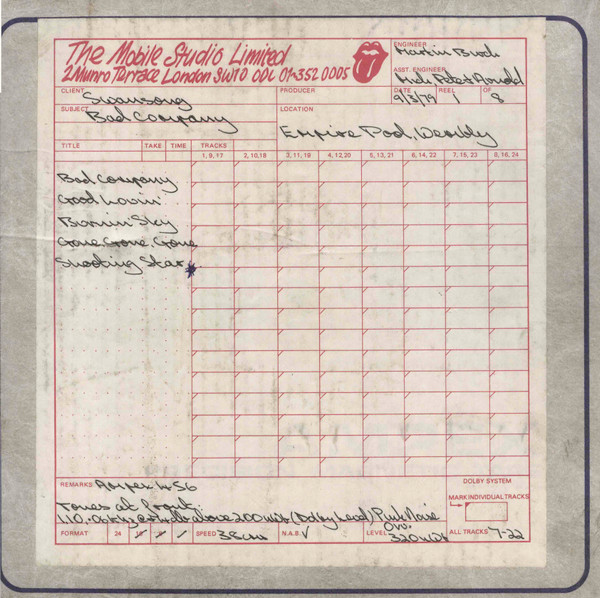 The Mobile Studio Limited
2 Munro Terrace London SW10 0DL 01-352 0005
ENGINEER
Martin Birch
ASST. ENGINEER
Mick Peter Arnold
CLIENT
Swansong
PRODUCER
DATE
9/3/79
REEL
1
OF
8
SUBJECT
Bad Company
LOCATION
Empire Pool, Wembly
TITLE TAKE TIME TRACKS
1, 9, 17 2, 10, 18 3, 11, 19 4, 12, 20 5, 13, 21 6, 14, 22 7, 15, 23 8, 16, 24
Bad Company
Good Lovin'
Burnin' Sky
Gone, Gone, Gone
Shooting Star*
REMARKS Ampex 456
Tones at front
above 200 nWb (Dolby Level) Pink Noise
DOLBY SYSTEM
MARK INDIVIDUAL TRACKS
FORMAT 24 16 SPEED 38cm N.A.B. √ LEVEL Ovu. 320 nWb ALL TRACKS 7-22